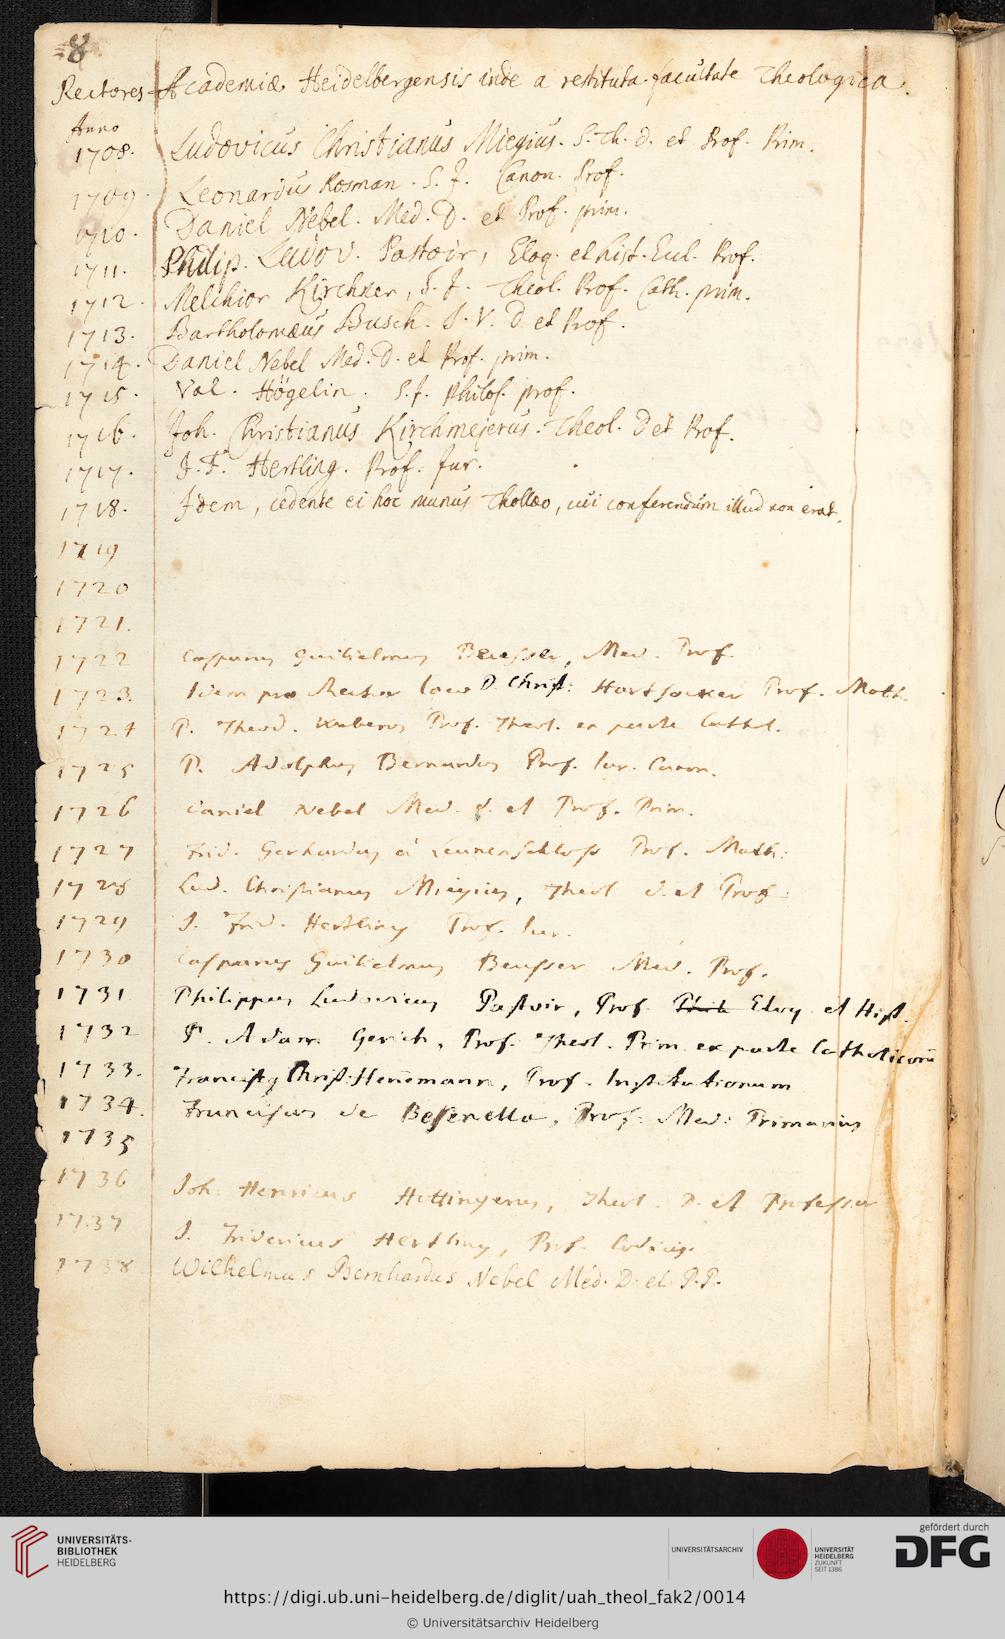 8
Rectores Academiæ Heidelbergensis inde a restituta facultate Theologica.
Anno
1708. Ludovicus Christianus Miegius. S. Th. D. et Prof. Prim.
1709. Leonardus Rosman. S. J. Canon. Prof.
1710. Daniel Nebel. Med. D. et Prof. prim.
1711. Philip. Ludov. Pastoir, Eloq. et hist. Eccl. Prof.
1712. Melchior Kirchner, S. J. Theol. Prof. Cath. prim.
1713. Bartholomæus Busch. J. V. D. et Prof.
1714. Daniel Nebel Med. D. et Prof. prim.
1715. Val. Högelin. S. J. Philos. prof.
1716. Joh. Christianus Kirchmejerus. Theol. D et Prof.
1717. J. F. Hertling. Prof. Jur.
1718. Idem, cedente ei hoc munus Thollæo, cui conferendum illud non erat.
1719
1720
1721.
1722 Casparus Guilielmus Beusser, Med. Prof.
1723. Idem pro Rector loco D. Christ: Hartsoeker Prof. Math.
1724 P. Theod. Prof. Theol. ex parte Cathol.
1725 P. Adolphus Bernardus Prof. Iur. Canon.
1726 Daniel Nebel Med. d. et Prof. Prim.
1727 Frid. Gerhardus à Leunenschloss Prof. Math:
1728 Lud. Christianus Miegius, Theol d. et Prof.
1729 J. Frid. Hertling Prof. Iur.
1730 Casparus Guilielmus Beusser Med. Prof.
1731 Philippus Ludovicus Pastoir, Prof. Eloq. et Hist.
1732 P. Adam Gerich, Prof. Theol. Prim. ex parte Catholicorū
1733. Franciscg Christ: Hennemann, Prof. Institutionum
1734. Franciscus de Besenella, Prof. Med: Primarius
1735
1736 Joh. Henricus Hottingerus, Theol. D. et Professor
1737 J. Fridericus Hertling, Prof. Codicis.
1738 Wilhelmus Bernhardus Nebel Med. D. et P. P.
UNIVERSITÄTS-
BIBLIOTHEK
HEIDELBERG
UNIVERSITÄTSARCHIV
UNIVERSITÄT
HEIDELBERG
ZUKUNFT
SEIT 1386
gefördert durch
DFG
https://digi.ub.uni-heidelberg.de/diglit/uah_theol_fak2/0014
© Universitätsarchiv Heidelberg